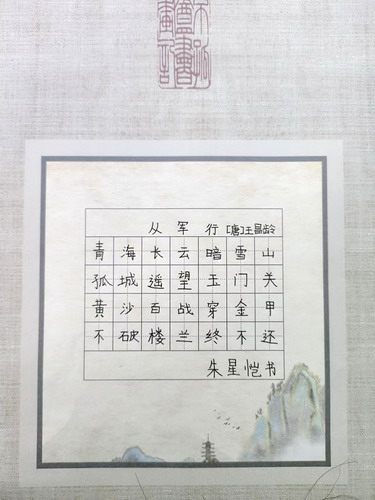 从军行 [唐]王昌龄
青海长云暗雪山
狐城遥望玉门关
黄沙百战穿金甲
不破楼兰终不还
朱星恺书